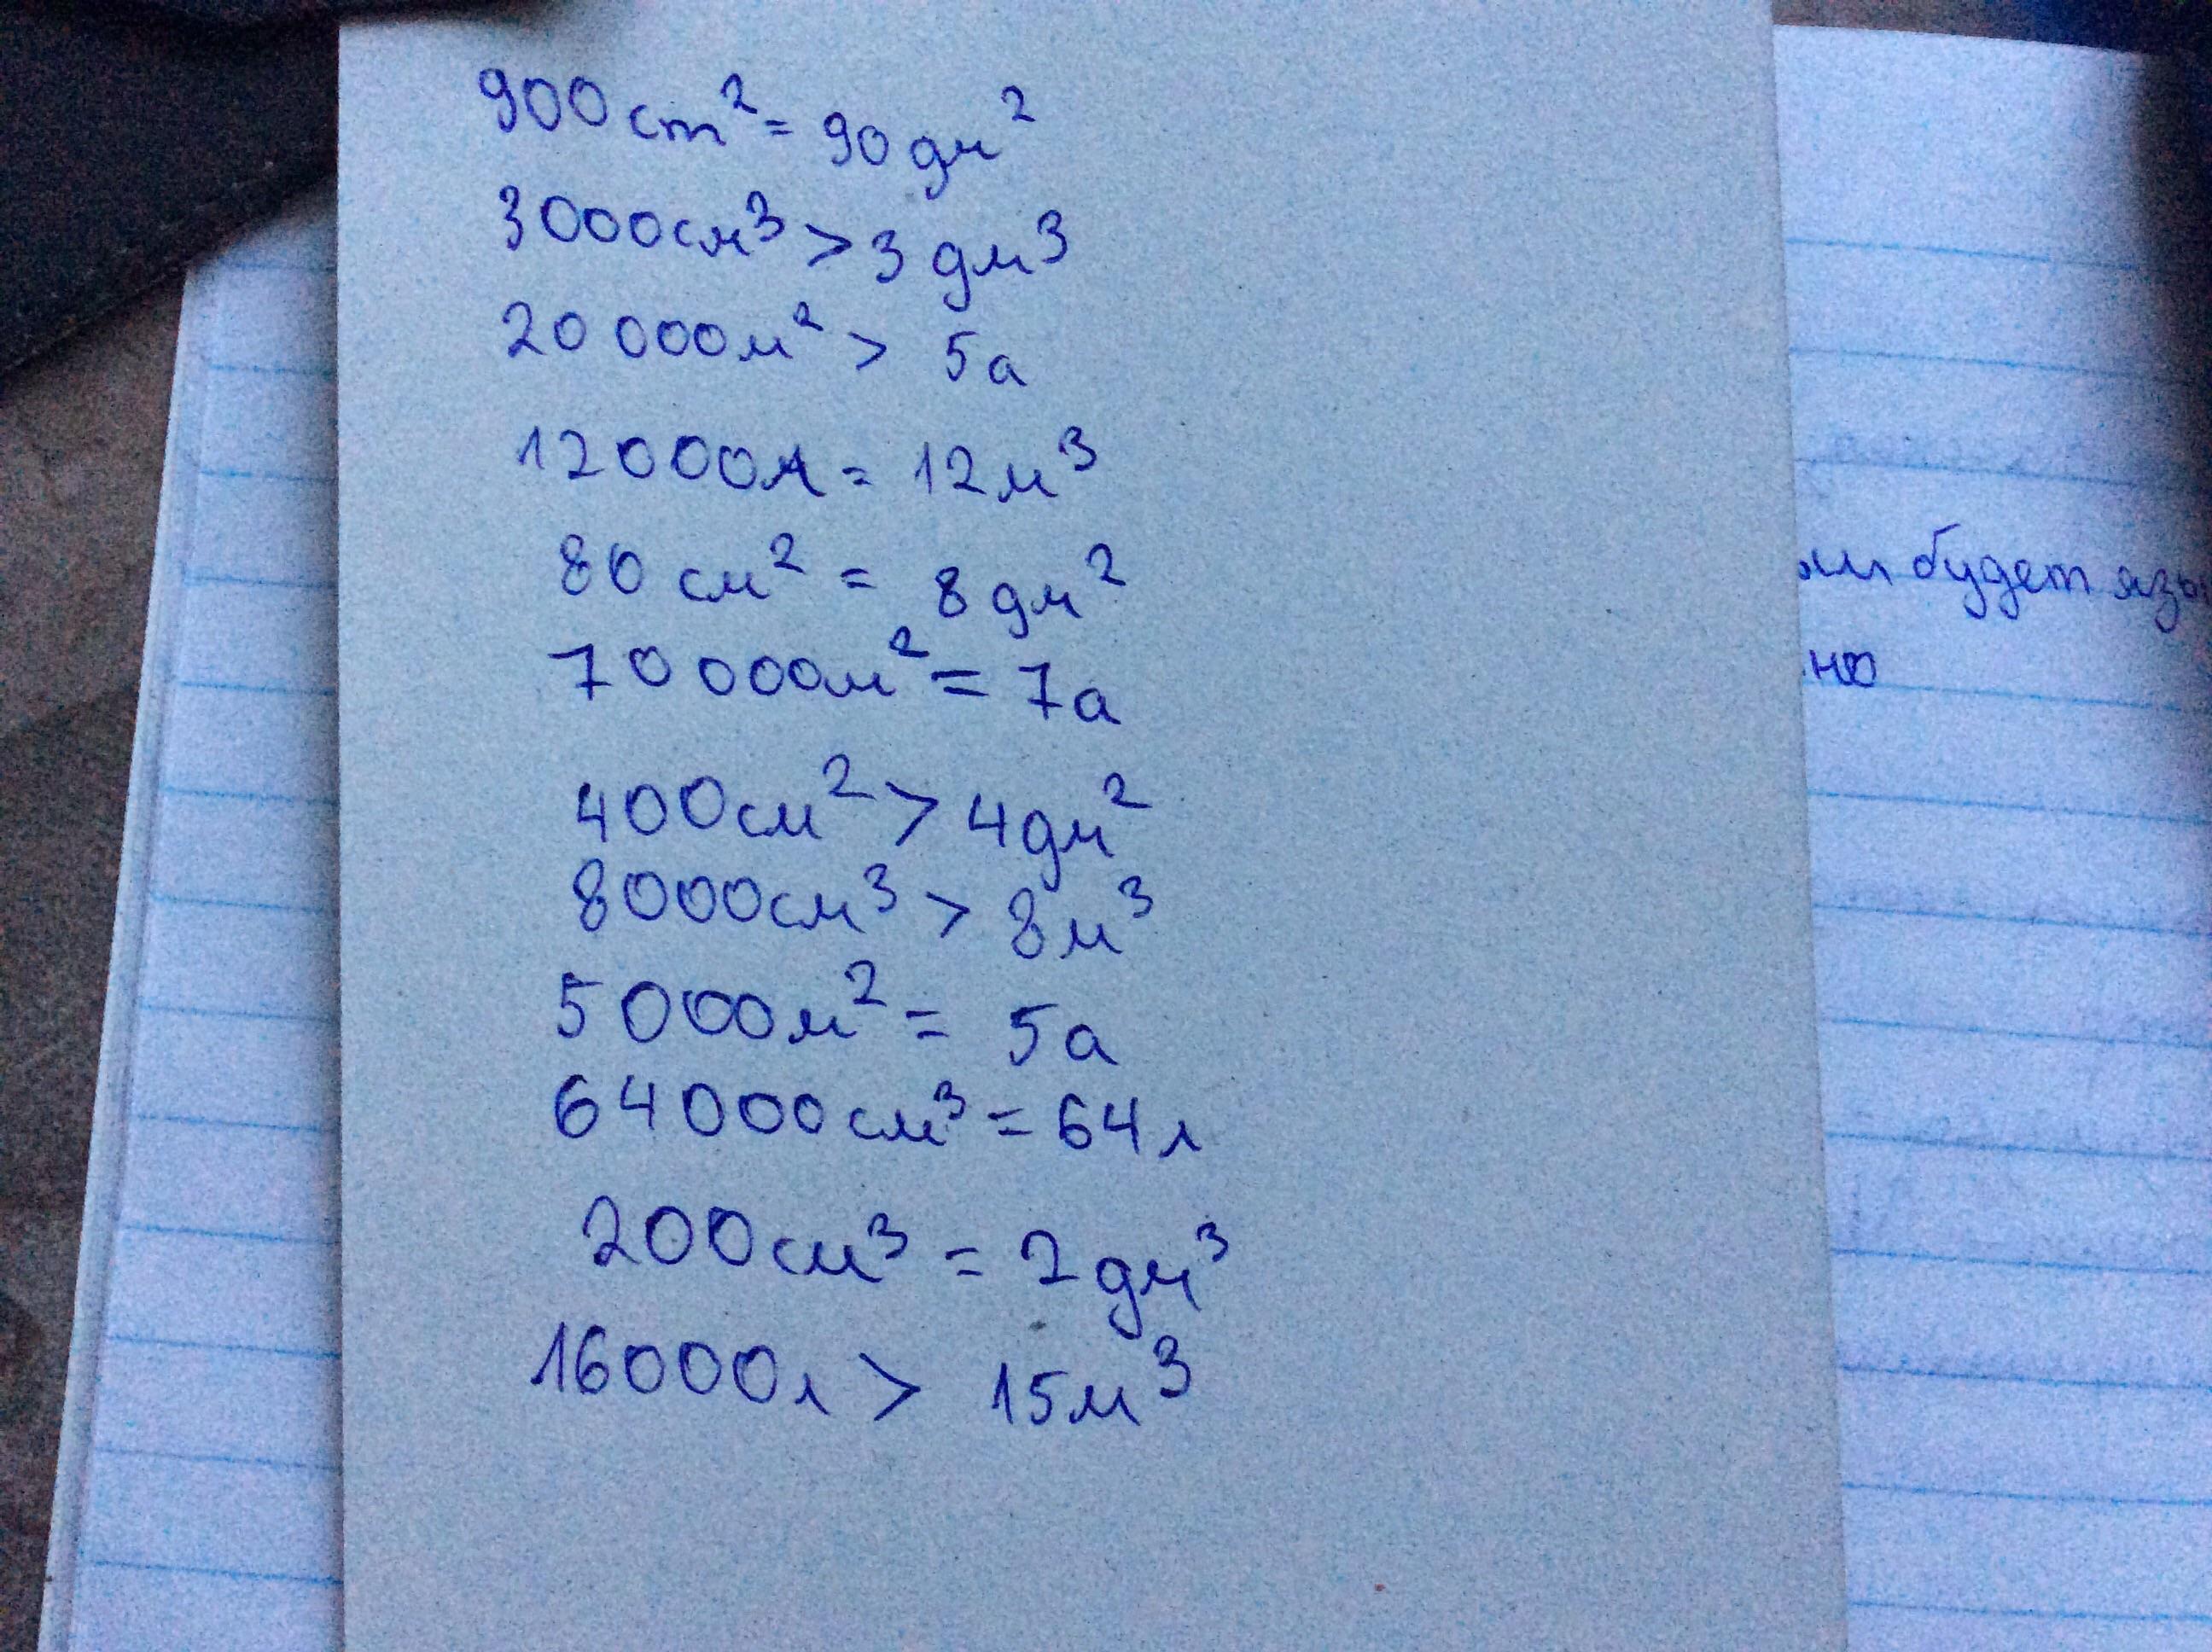 900 cm² = 90 дм²
3000см³ > 3 дм³
20 000м² > 5а
12000л = 12м³
80 см² = 8 дм²
70 000м² = 7а
400см² > 4дм²
8000см³ > 8м³
5000м² = 5а
64000см³ = 64л
200см³ = 2дм³
16000л > 15м³
будет язы
но